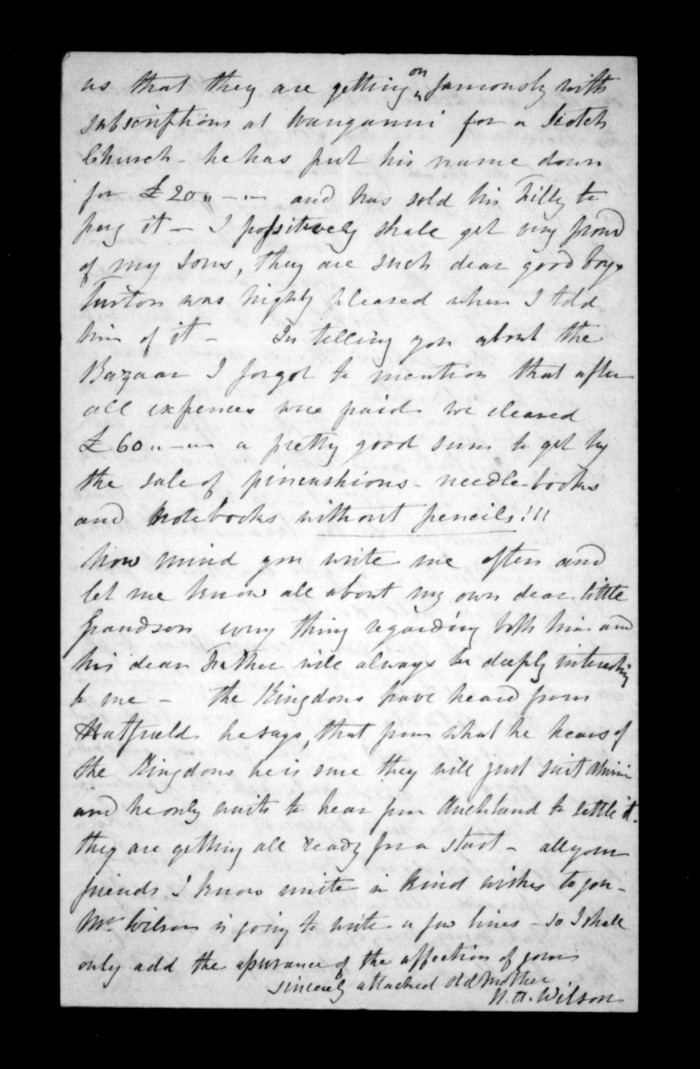 us that they are getting on famously with
subscriptions at Wanganui for a Scotch
Church - he has put his name down
for £20.. - .. and has sold his Filly to
pay it - I possitively shall get very proud
of my sons, they are such dear good boys
Turton was highly pleased when I told
him of it - In telling you about the
Bazaar I forgot to mention that after
all expences were paid we cleared
£60.. - .. a pretty good sum to get by
the sale of pincushions - needle-books
and notebooks without pencils!!!
Now mind you write me often and
let me know all about my own dear little
Grandson every thing regarding both him and
his dear Father will always be deeply interesting
to me - the Kingdons have heard from
Hatfield he says, that from what he hears of
the Kingdons he is sure they will just suit
and he only waits to hear from Auckland to settle it.
they are getting all ready for a start - all your
friends I know unite in kind wishes to you -
Mr Wilson is going to write a few lines - so I shall
only add the assurance of the affection of your
sincerely attached old Mother
Wilson